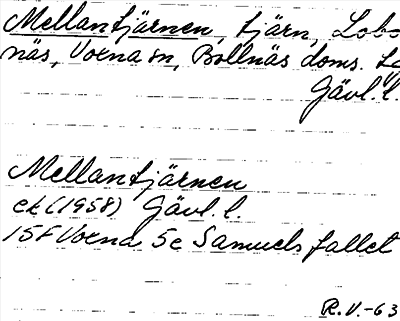 Mellantjärnen, tjärn, Lobo
näs, Voxna sn, Bollnäs doms. Lg
Gävl. l.
Mellantjärnen
ek (1958) Gävl. l.
15F Voxna 5e Samuelsfallet
R.V.-63